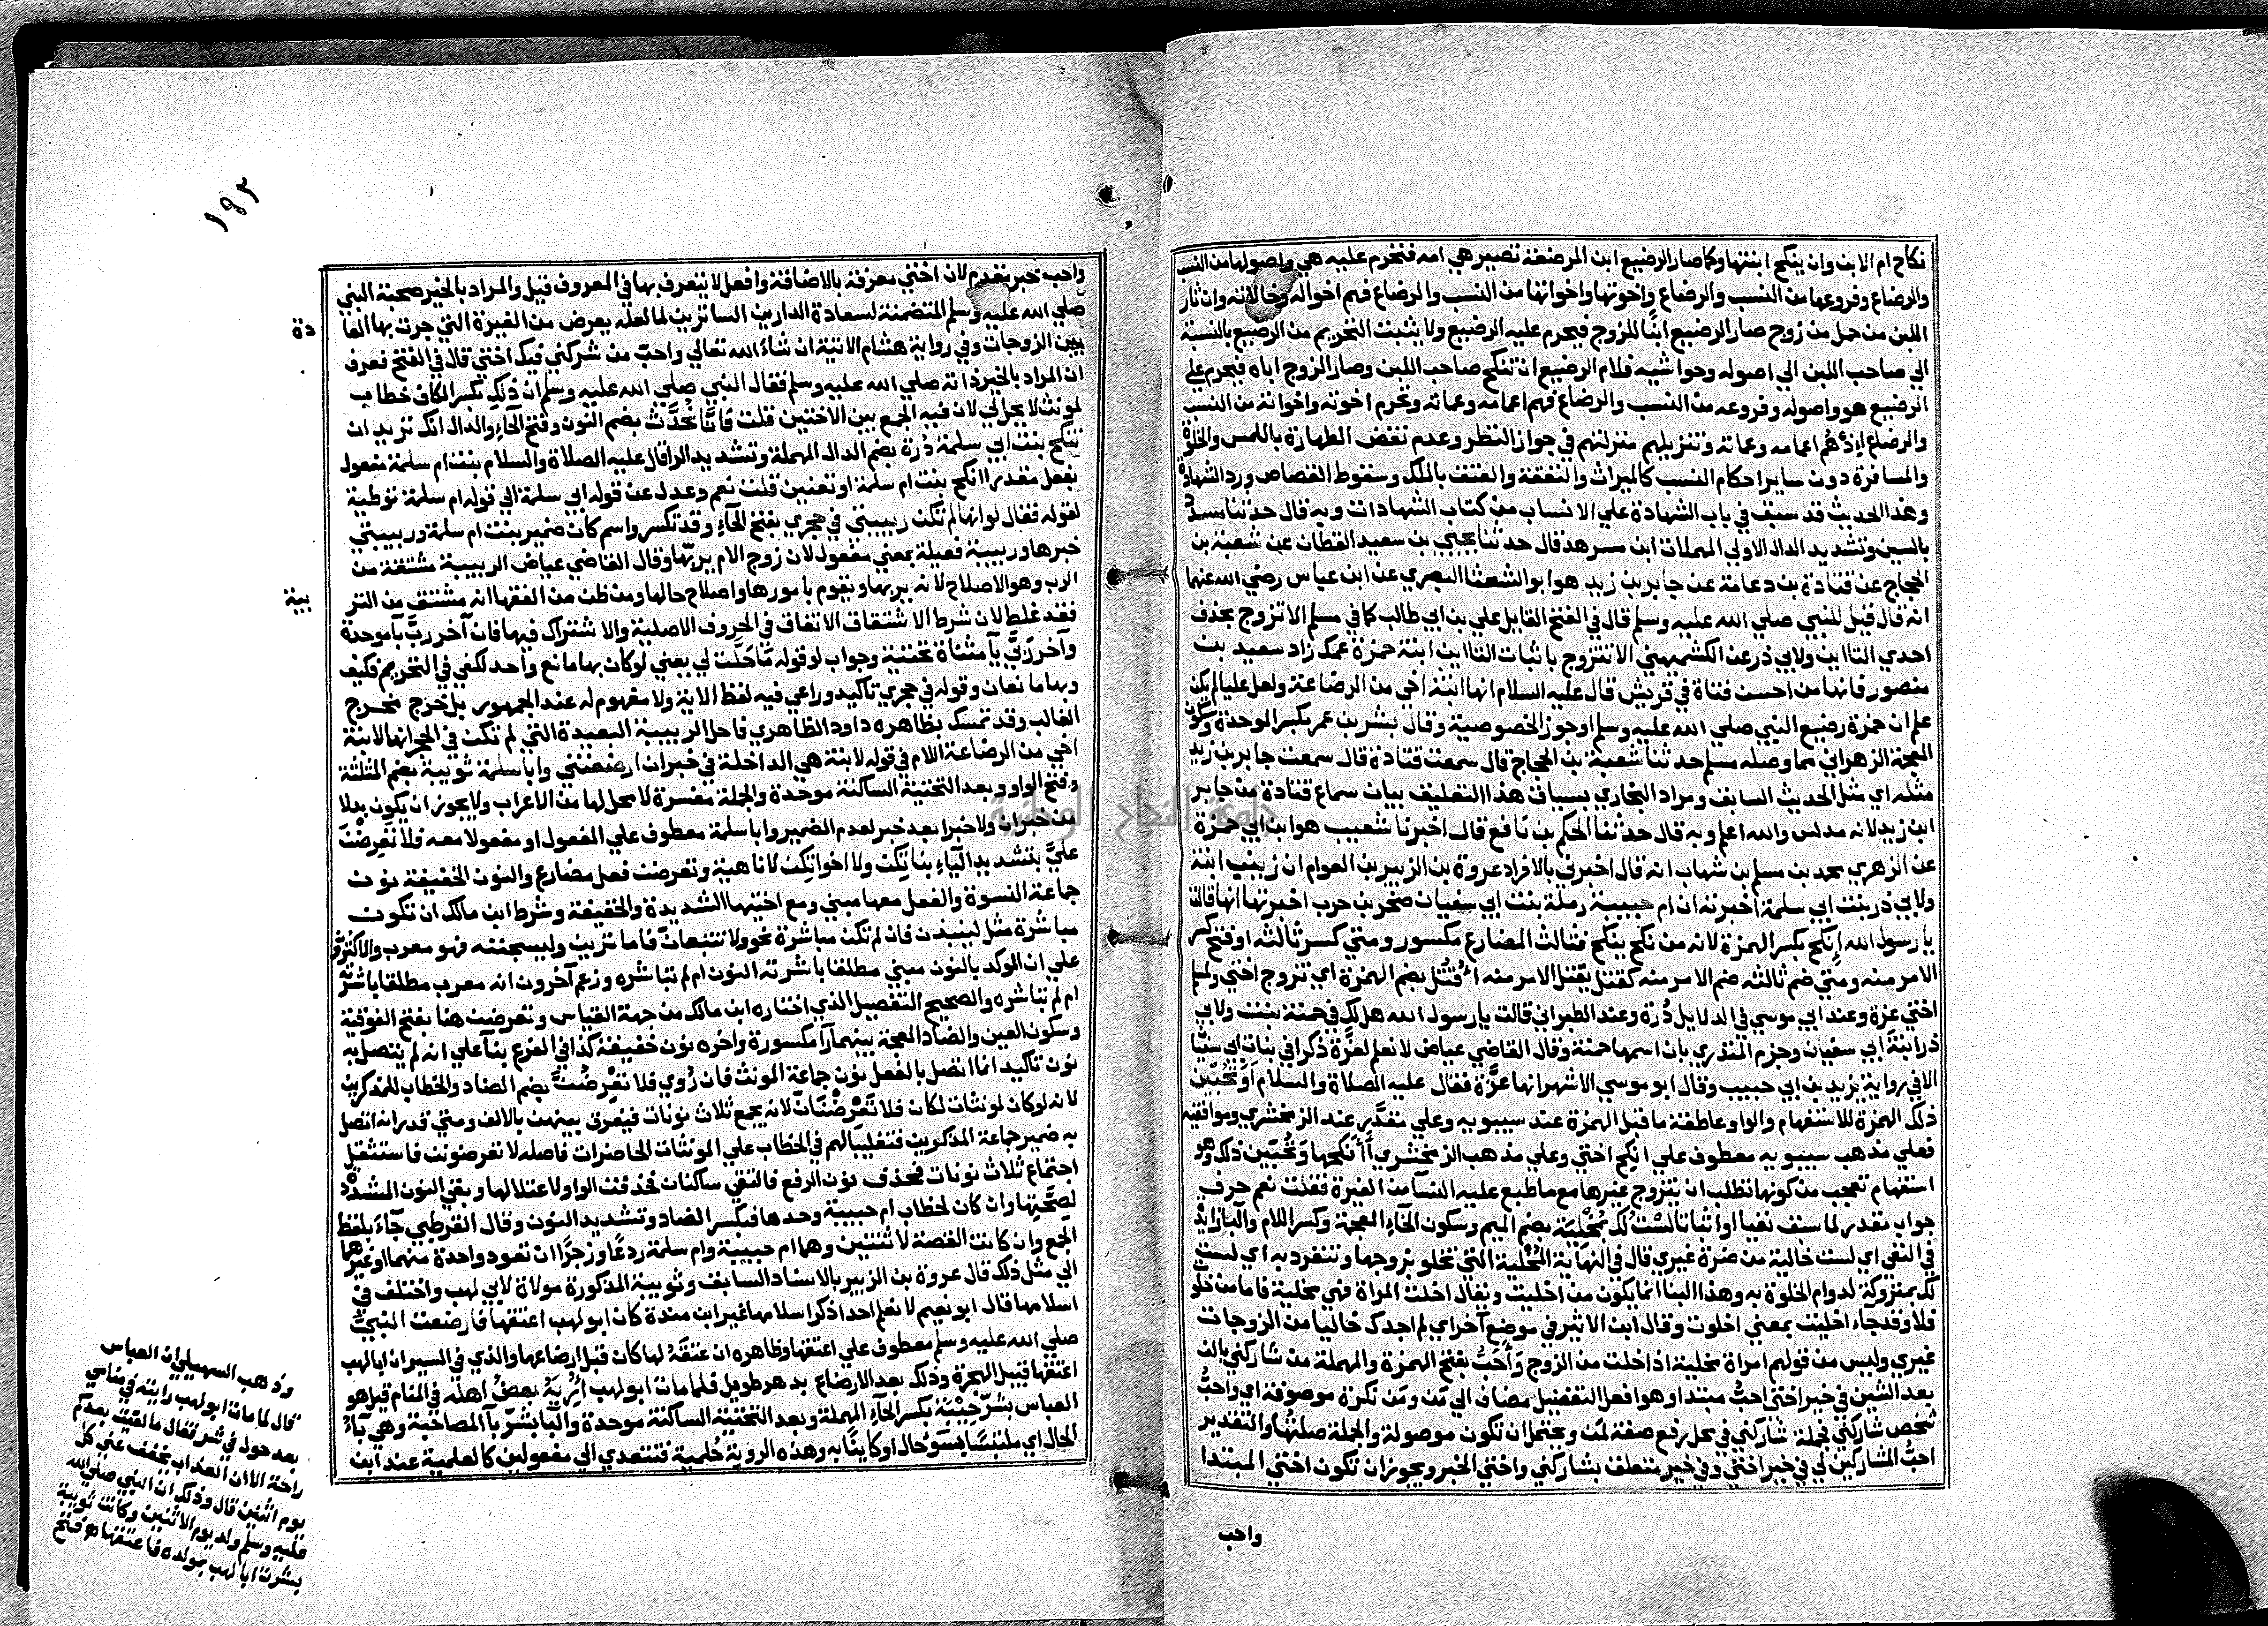 نكاح ام الابن وان ينكح ابنتها وكما صار الرضيع ابن المرضعة تصير هي امه فتحرم عليه هي واصولها من النسب
والرضاع وفروعها من النسب والرضاع واخوتها واخواتها من النسب والرضاع فهم اخواله وخالاته وان ثار
اللبن من حمل من زوج صار الرضيع ابنا للزوج فيحرم عليه الرضيع ولا يثبت التحريم من الرضيع بالنسبة
الي صاحب اللبن الي اصوله وحواشيه فلام الرضيع ان تنكح صاحب اللبن وصار الزوج اباه فيحرم علي
الرضيع هو واصوله وفروعه من النسب والرضاع فهم اعمامه وعماته وتحرم اخوته واخواته من النسب
والرضاع اذ هم اعمامه وعماته وتنزيلهم منزلتهم في جواز النظر وعدم نقض الطهارة باللمس والخلوة
والمسافرة دون ساير احكام النسب كالميراث والنفقة والعتق بالملك وسقوط القصاص ورد الشهادة
وهذا الحديث قد سبق في باب الشهادة علي الانساب من كتاب الشهادات وبه قال حدثنا مسدد
بالسين وتشديد الدال الاولي المهملات ابن مسرهد قال حدثنا يحيي بن سعيد القطان عن شعبة بن
الحجاج عن قتادة بن دعامة عن جابر بن زيد هو ابو الشعثا البصري عن ابن عباس رضي الله عنهما
انه قال قيل للنبي صلي الله عليه وسلم قال في الفتح القايل علي بن ابي طالب كما في مسلم الا تزوج بحذف
احدي التاين ولابي ذر عن الكشميهني الا تتزوج باثبات التاين ابنة حمزة عمك زاد سعيد بن
منصور فانها من احسن فتاة في قريش قال عليه السلام انها ابنة اخي من الرضاعة ولعل عليا لم يكن
علم ان حمزة رضيع النبي صلي الله عليه وسلم او جوز الخصوصية وقال بشر بن عمر بكسر الموحدة وسكون
المعجمة الزهراني مما وصله مسلم حدثنا شعبة بن الحجاج قال سمعت قتادة قال سمعت جابر بن زيد
مثله اي مثل الحديث السابق ومراد البخاري بسياق هذا التعليق بيان سماع قتادة من جابر
ابن زيد لانه مدلس والله اعلم وبه قال حدثنا الحكم بن نافع قال اخبرنا شعيب هو ابن ابي حمزة
عن الزهري محمد بن مسلم بن شهاب انه قال اخبرني بالافراد عروة بن الزبير بن العوام ان زينب ابنة
ولابي ذر بنت ابي سلمة اخبرته ان ام حبيبة رملة بنت ابي سفيان صخر بن حرب اخبرتها انها قالت
يا رسول الله انكح بكسر الهمزة لانه من نكح ينكح فثالث المضارع مكسور ومتي كسر ثالثه او فتح كسر
الامر منه ومتي ضم ثالثه ضم الامر منه كقتل يقتل الامر منه اقتل بضم الهمزة اي تزوج اختي ولمسلم
اختي عزة وعند ابي موسي في الدلايل درة وعند الطبراني قالت يا رسول الله هل لك في حمنة بنت ولابي
ذر ابنة ابي سفيان وجزم المنذري بان اسمها حمنة وقال القاضي عياض لا نعلم لعزة ذكرا في بنات ابي سفيان
الا في رواية يزيد بن ابي حبيب وقال ابو موسي الاشهر انها عزة فقال عليه الصلاة والسلام اوتحبين
ذلك الهمزة للاستفهام والواو عاطفة ما قبل الهمزة عند سيبويه وعلي مقدر عند الزمخشري وموافقيه
فعلي مذهب سيبويه معطوف علي انكح اختي وعلي مذهب الزمخشري أأنكحها وتحبين ذلك وهو
استفهام تعجب من كونها تطلب ان يتزوج غيرها مع ما طبع عليه النسا من الغيرة فقلت نعم حرف
جواب مقدر لما سبق نفيا او اثباتا لست لك بمخلية بضم الميم وسكون الخاء المعجمة وكسر اللام والبا زايدة
في النفي اي لست خالية من ضرة غيري قال في النهاية المخلية التي تخلو بزوجها وتنفرد به اي لست
لك بمتروكة لدوام الخلوة به وهذا البنا انما يكون من اخليت ويقال اخلت المراة فهي مخلية فاما من خلو
فلا وقد جاء اخليت بمعني اخلوت وقال ابن الاثير في موضع آخر اي لم اجدك خاليا من الزوجات
غيري وليس من قولهم امراة مخلية اذا خلت من الزوج وأحب بفتح الهمزة والمهملة من شاركني بالف
بعد الشين في خير اختي احب مبتدا وهو افعل التفضيل مضاف الي من ومن نكرة موصوفة اي واحب
شخص شاركني فجملة شاركني في محل رفع صفة لمن ويحتمل ان تكون موصولة والجملة صلتها والتقدير
احب المشاركين لي في خير اختي وفي خير متعلق بشاركني واختي الخبر ويجوز ان تكون اختي المبتدا
واحب
١٩٢
واحب خبر مقدم لان اختي معرفة بالاضافة وافعل لا يتعرف بها في المعروف قيل والمراد بالخير صحبة النبي
صلي الله عليه وسلم المتضمنة لسعادة الدارين الساترين لما لعله يعرض من الغيرة التي جرت بها العا
دة
بين الزوجات وفي رواية هشام الاتية ان شاء الله تعالي واحب من شركني فيك اختي قال في الفتح فعرف
ان المراد بالخير ذاته صلي الله عليه وسلم فقال النبي صلي الله عليه وسلم ان ذلك بكسر الكاف خطاب
لمونث لا يحل لي لان فيه الجمع بين الاختين قلت فانا نحدث بضم النون وفتح الحاء والدال انك تريد ان
تنكح بنت ابي سلمة درة بضم الدال المهملة وتشديد الرا قال عليه الصلاة والسلام بنت ام سلمة مفعول
بفعل مقدر اانكح بنت ام سلمة او تعنين قلت نعم وعدل عن قوله ابي سلمة الي قوله ام سلمة توطية
لقوله فقال لو انها لم تكن ربيبتي في حجري بفتح الحاء وقد تكسر واسم كان ضمير بنت ام سلمة وربيبتي
خبرها وربيبة فعيلة بمعني مفعول لان زوج الام يربها وقال القاضي عياض الربيبة مشتقة من
الرب وهو الاصلاح لانه يربها ويقوم بامورها واصلاح حالها ومن ظن من الفقها انه مشتق من التر
بية
فقد غلط لان شرط الاشتقاق الاتفاق في الحروف الاصلية والاشتراك فيها فان آخر رب بآ موحدة
وآخر ربي يآ مثناة تحتية وجواب لو قوله ما حلت لي يعني لو كان بها مانع واحد لكفي في التحريم فكيف
وبها مانعان وقوله في حجري تاكيد وراعي فيه لفظ الاية ولا مفهوم له عند الجمهور بل خرج مخرج
الغالب وقد تمسك بظاهره داود الظاهري فاحل الربيبة البعيدة التي لم تكن في الحجر انها لابنة
اخي من الرضاعة اللام في قوله لابنة هي الداخلة في خبر ان ارضعتني وابا سلمة ثويبة بضم المثلثة
وفتح الواو وبعد التحتية الساكنة موحدة والجملة مفسرة لا محل لها من الاعراب ولا يجوز ان يكون بدلا
من خبر ان ولا خبرا بعد خبر لعدم الضمير وابا سلمة معطوف علي المفعول او مفعولا معه فلا تعرضن
علي بتشديد الياء بناتكن ولا اخواتكن لا ناهية وتعرضن فعل مضارع والنون الخفيفة نون
جماعة النسوة والفعل معها مبني ومع اختيها الشديدة والخفيفة وشرط ابن مالك ان تكون
مباشرة مثل لينبذن فان لم تكن مباشرة نحو ولا تتبعان فاما ترين وليسجننه فهو معرب والاكثرون
علي ان الموكد بالنون مبني مطلقا باشرته النون ام لم تباشره وزعم آخرون انه معرب مطلقا باشرته
ام لم تباشره والصحيح التفصيل الذي اختاره ابن مالك من جهة القياس وتعرضن هنا بفتح الفوقية
وسكون العين والضاد المعجمة بينهما رآ مكسورة وآخره نون خفيفة كذا في الفرع بنآ علي انه لم يتصل به
نون تاكيد انما اتصل بالفعل نون جماعة المونث فان روي فلا تعرضن بضم الضاد والخطاب للمذكرين
لانه لو كان لمونثات لكان فلا تعرضنان لانه يجمع ثلاث نونات فيفرق بينهن بالالف ومتي قدر انه اتصل
به ضمير جماعة المذكورين فتغليبا لهم في الخطاب علي المونثات الحاضرات فاصله لا تعرضونن فاستثقل
اجتماع ثلاث نونات فحذف نون الرفع فالتقي ساكنان فحذفت الواو لاعتلالها وبقي النون المشددة
لصحتها وان كان لخطاب ام حبيبة وحدها فبكسر الضاد وتشديد النون وقال القرطبي جاء بلفظ
الجمع وان كانت القصة لاثنتين وهما ام حبيبة وام سلمة ردعا وزجرا ان تعود واحدة منهما او غيرهما
الي مثل ذلك قال عروة بن الزبير بالاسناد السابق وثويبة المذكورة مولاة لابي لهب واختلف في
اسلامها قال ابو نعيم لا نعلم احدا ذكر اسلامها غير ابن مندة كان ابو لهب اعتقها فارضعت النبي
صلي الله عليه وسلم معطوف علي اعتقها وظاهره ان عتقه لها كان قبل ارضاعها والذي في السير ان ابا لهب
اعتقها قبيل الهجرة وذلك بعد الارضاع بدهر طويل فلما مات ابو لهب اريه بعض اهله في المنام قيل هو
العباس بشر حيبة بكسر الحاء المهملة وبعد التحتية الساكنة موحدة والبا بشر بآ المصاحبة وهي بآء
الحال اي ملتبسا بسوء حال او كاينا به وهذه الروية حلمية فتتعدي الي مفعولين كالعلمية عند ابن
وذهب السهيلي ان العباس
قال لما مات ابو لهب رايته في منامي
بعد حول في شر فقال ما لقيت بعدكم
راحة الا ان العذاب يخفف عني كل
يوم اثنين قال وذلك ان النبي صلي الله
عليه وسلم ولد يوم الاثنين وكانت ثويبة
بشرت ابا لهب بمولده فاعتقها فتح
جامعة النجاح الوطنية